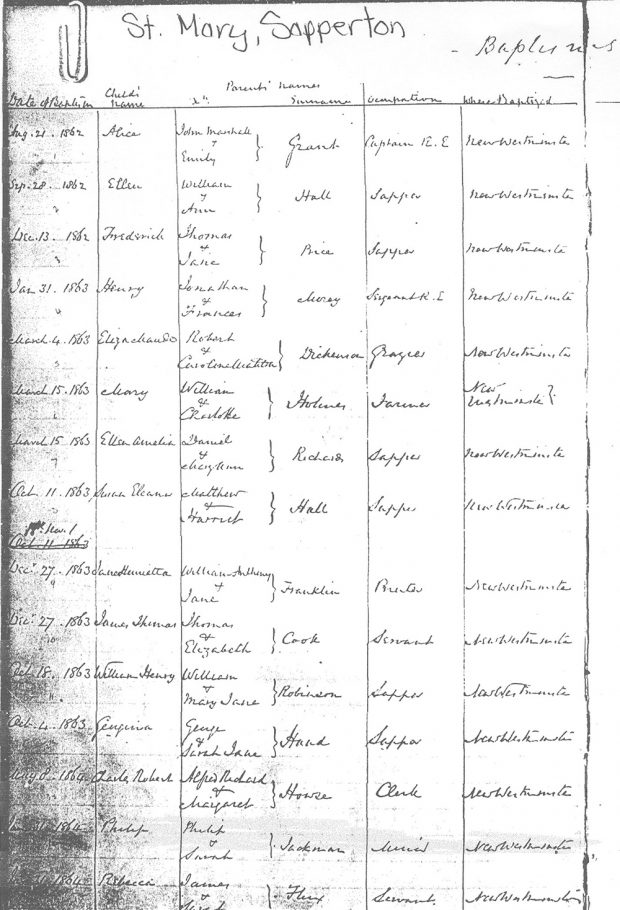 St. Mary, Sapperton
- Baptisms
Date of Baptism Child's Name Parents' Names Xn. Surname Occupation Where Baptized
Aug. 21. 1862 Alice John Marshall & Emily } Grant Captain R. E New Westminster
Sep. 28. 1862 Ellen William & Ann } Hall Sapper New Westminster
Dec. 13. 1862 Frederick Thomas & Jane } Price Sapper New Westminster
Jan 31. 1863 Henry Jonathan & Frances } Morey Sergeant R. E New Westminster
March 4. 1863 Eliza Maude Robert & Caroline } Dickenson Grazier New Westminster
March 15. 1863 Mary William & Charlotte } Holmes Farmer New Westminster }
March 15 1863 Ellen Amelia Daniel & Mary Ann } Richards Sapper New Westminster
Oct. 11. 1863 Susan Eleanor Matthew & Harriet } Hall Sapper New Westminster
Nov. 1
Oct. 11 1863
Dec. 27. 1863 Jane Henrietta William Anthony & Jane } Franklin Printer New Westminster
Dec. 27 1863 James Thomas Thomas & Elizabeth } Cook Servant New Westminster
Oct. 18. 1863 William Henry William & Mary Jane } Robinson Sapper New Westminster
Oct. 4. 1863 Georgina George & Sarah Jane } Hand Sapper New Westminster
1864 Charles Robert Alfred Richard & Margaret } Howse Clerk New Westminster
1864 Philip Philip & Sarah } Jackman Miner New Westminster
1864 Rebecca James & } Flux Servant New Westminster